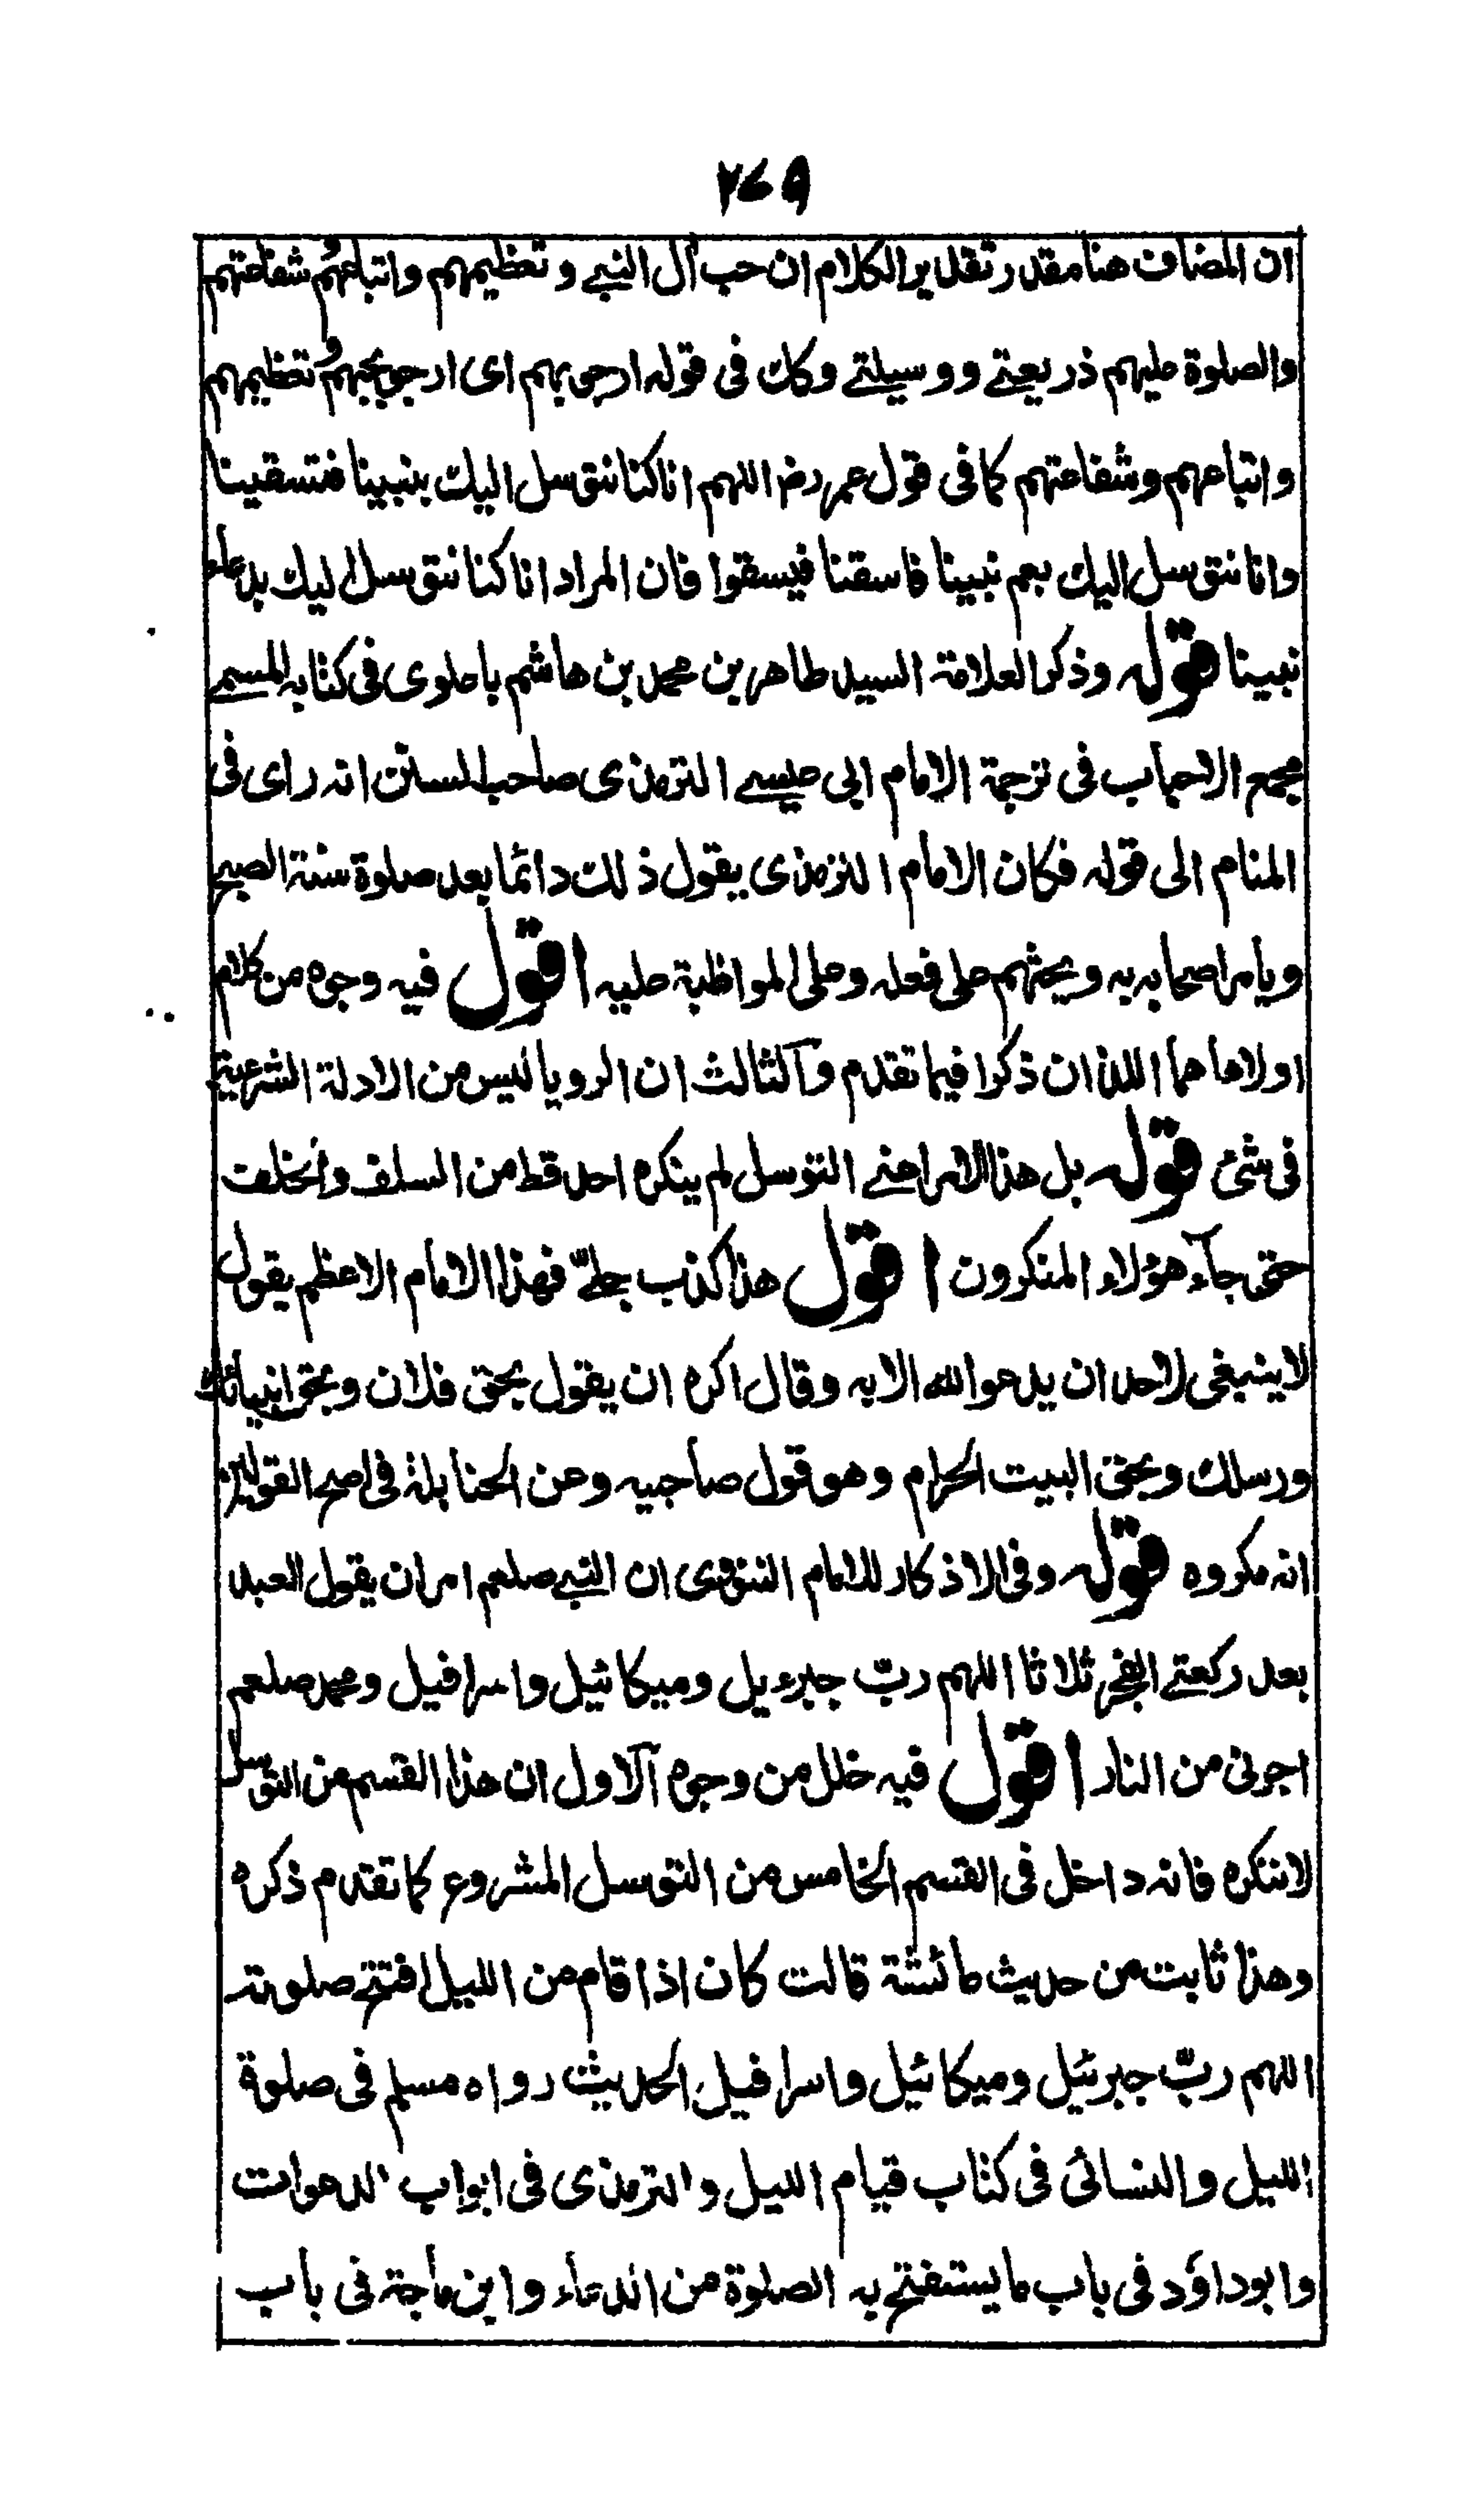 ٢٧٩
ان المضاف هنا مقدر تقدير الكلام ان حب آل النبي و تعظيمهم واتباعهم و شفاعتهم
والصلوة عليهم ذريعتي ووسيلتي وكك في قوله ارجو بهم اى ارجو بحبهم و تعظيمهم
واتباعهم وشفاعتهم كما في قول عمر رض اللهم انا كنا نتوسل اليك بنبينا فتسقينا
وانا نتوسل اليك بعم نبينا فاسقنا فيسقوا فان المراد انا كنا نتوسل اليك بدعاء
نبينا قوله وذكر العلامة السيد طاهر بن محمد بن هاشم باعلوى فى كتابه المسمى
مجمع الاحباب فى ترجمة الامام ابى عيسى الترمذى صاحب السنن انه راى فى
المنام الى قوله فكان الامام الترمذى يقول ذلك دائما بعد صلوة سنة الصبح
ويامر اصحابه به ويحثهم على فعله وعلى المواظبة عليه اقول فيه وجوه من كلام
اولاها هما اللذان ذكرا فيما تقدم وآلثالث ان الرويا ليس من الادلة الشرعية
فى شئ قوله بل هذا الامر اعنى التوسل لم ينكره احد قط من السلف والخلف
حتى جآء هؤلاء المنكرون اقول هذا كذب جلىّ فهذا الامام الاعظم يقول
لا ينبغى لاحد ان يدعو الله الا به وقال اكره ان يقول بحق فلان وبحق انبيائك
ورسلك وبحق البيت الحرام وهو قول صاحبيه وعن الحنابلة فى اصح القولين
انه مكروه قوله وفى الاذكار للامام النووى ان النبى صلعم امر ان يقول العبد
بعد ركعتى الفجر ثلاثا اللهم ربّ جبرءيل وميكائيل واسرافيل ومحمد صلعم
اجرنى من النار اقول فيه خلل من وجوه آلاول ان هذا القسم من التوسل
لا ننكره فانه داخل فى القسم الخامس من التوسل المشروع كما تقدم ذكره
وهذا ثابت من حديث عائشة قالت كان اذا قام من الليل افتتح صلوته
اللهم ربّ جبرئيل وميكائيل واسرافيل الحديث رواه مسلم فى صلوة
الليل والنسائى فى كتاب قيام الليل والترمذى فى ابواب الدعوات
وابوداؤد فى باب ما يستفتح به الصلوة من الدعاء وابن ماجة فى باب